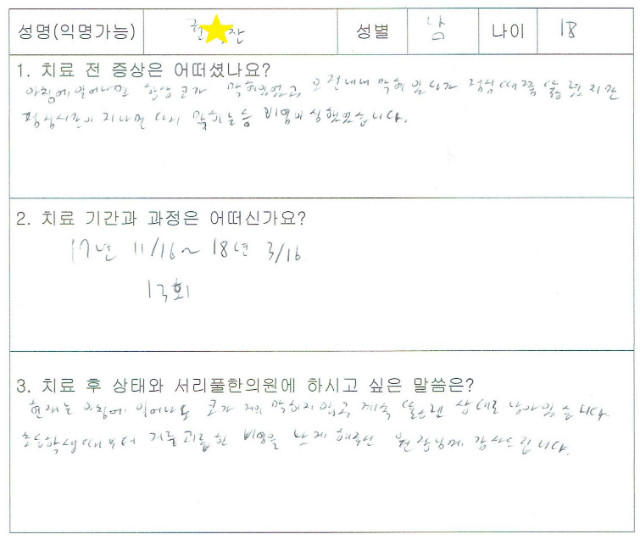 성명(익명가능) 권 찬 성별 남 나이 18
1. 치료 전 증상은 어떠셨나요?
아침에 일어나면 항상 코가 막혀있었고, 오전내내 막혀있다가 점심때쯤 뚫렸지만
점심시간이 지나면 다시 막히는등 비염이 심했었습니다.
2. 치료 기간과 과정은 어떠신가요?
17년 11/16 ~ 18년 3/16
13회
3. 치료 후 상태와 서리풀한의원에 하시고 싶은 말씀은?
현재는 아침에 일어나도 코가 거의 막히지 않고 계속 뚫린 상태로 남아있습니다.
초등학생때부터 저를 괴롭힌 비염을 낫게 해주신 원장님께 감사드립니다.